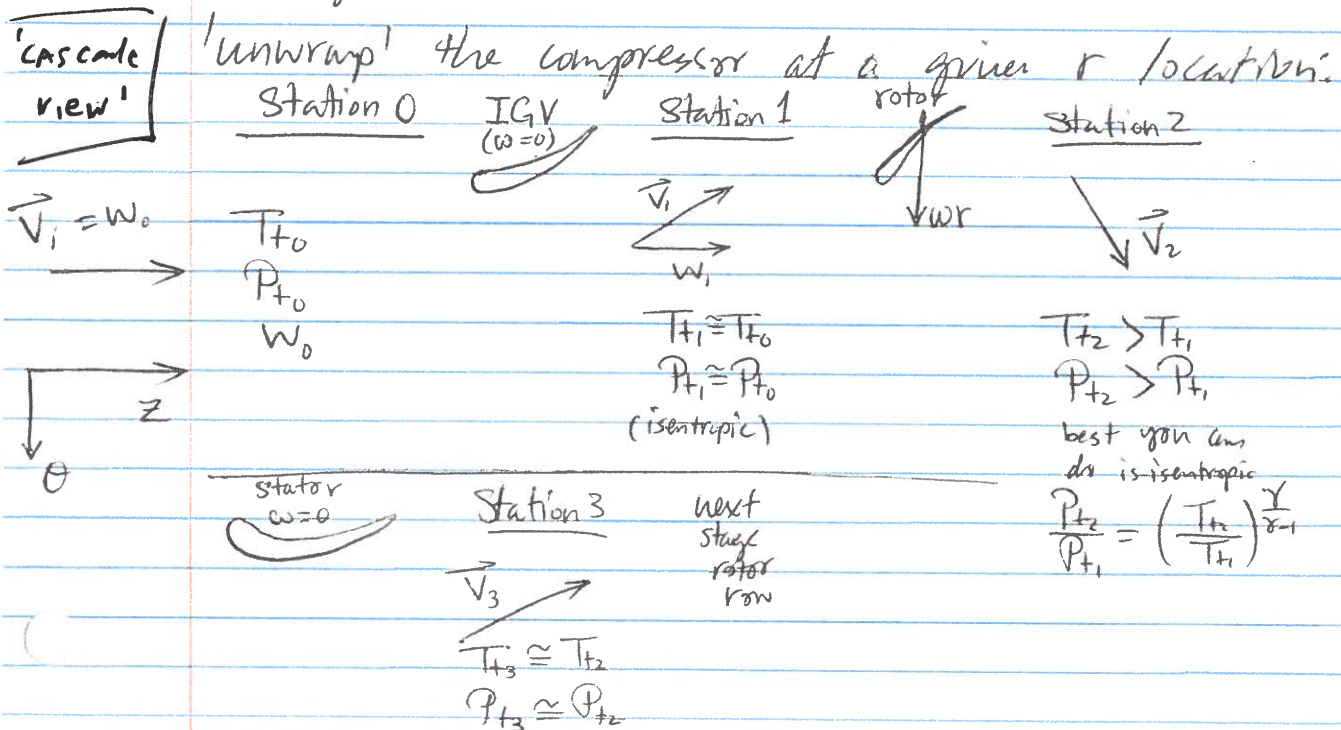 'cascade view'
'unwrap' the compressor at a given r location:
Station 0
IGV
(ω=0)
Station 1
rotor
Station 2
V⃗₁ = W₀
T_t₀
P_t₀
W₀
Z
θ
V⃗₁
W₁
T_t₁ ≅ T_t₀
P_t₁ ≅ P_t₀
(isentropic)
ωr
V⃗₂
T_t₂ > T_t₁
P_t₂ > P_t₁
best you can
do is isentropic
P_t₂/P_t₁ = (T_t₂/T_t₁)^(γ/(γ-1))
stator
ω=0
Station 3
V⃗₃
T_t₃ ≅ T_t₂
P_t₃ ≅ P_t₂
next
stage
rotor
row